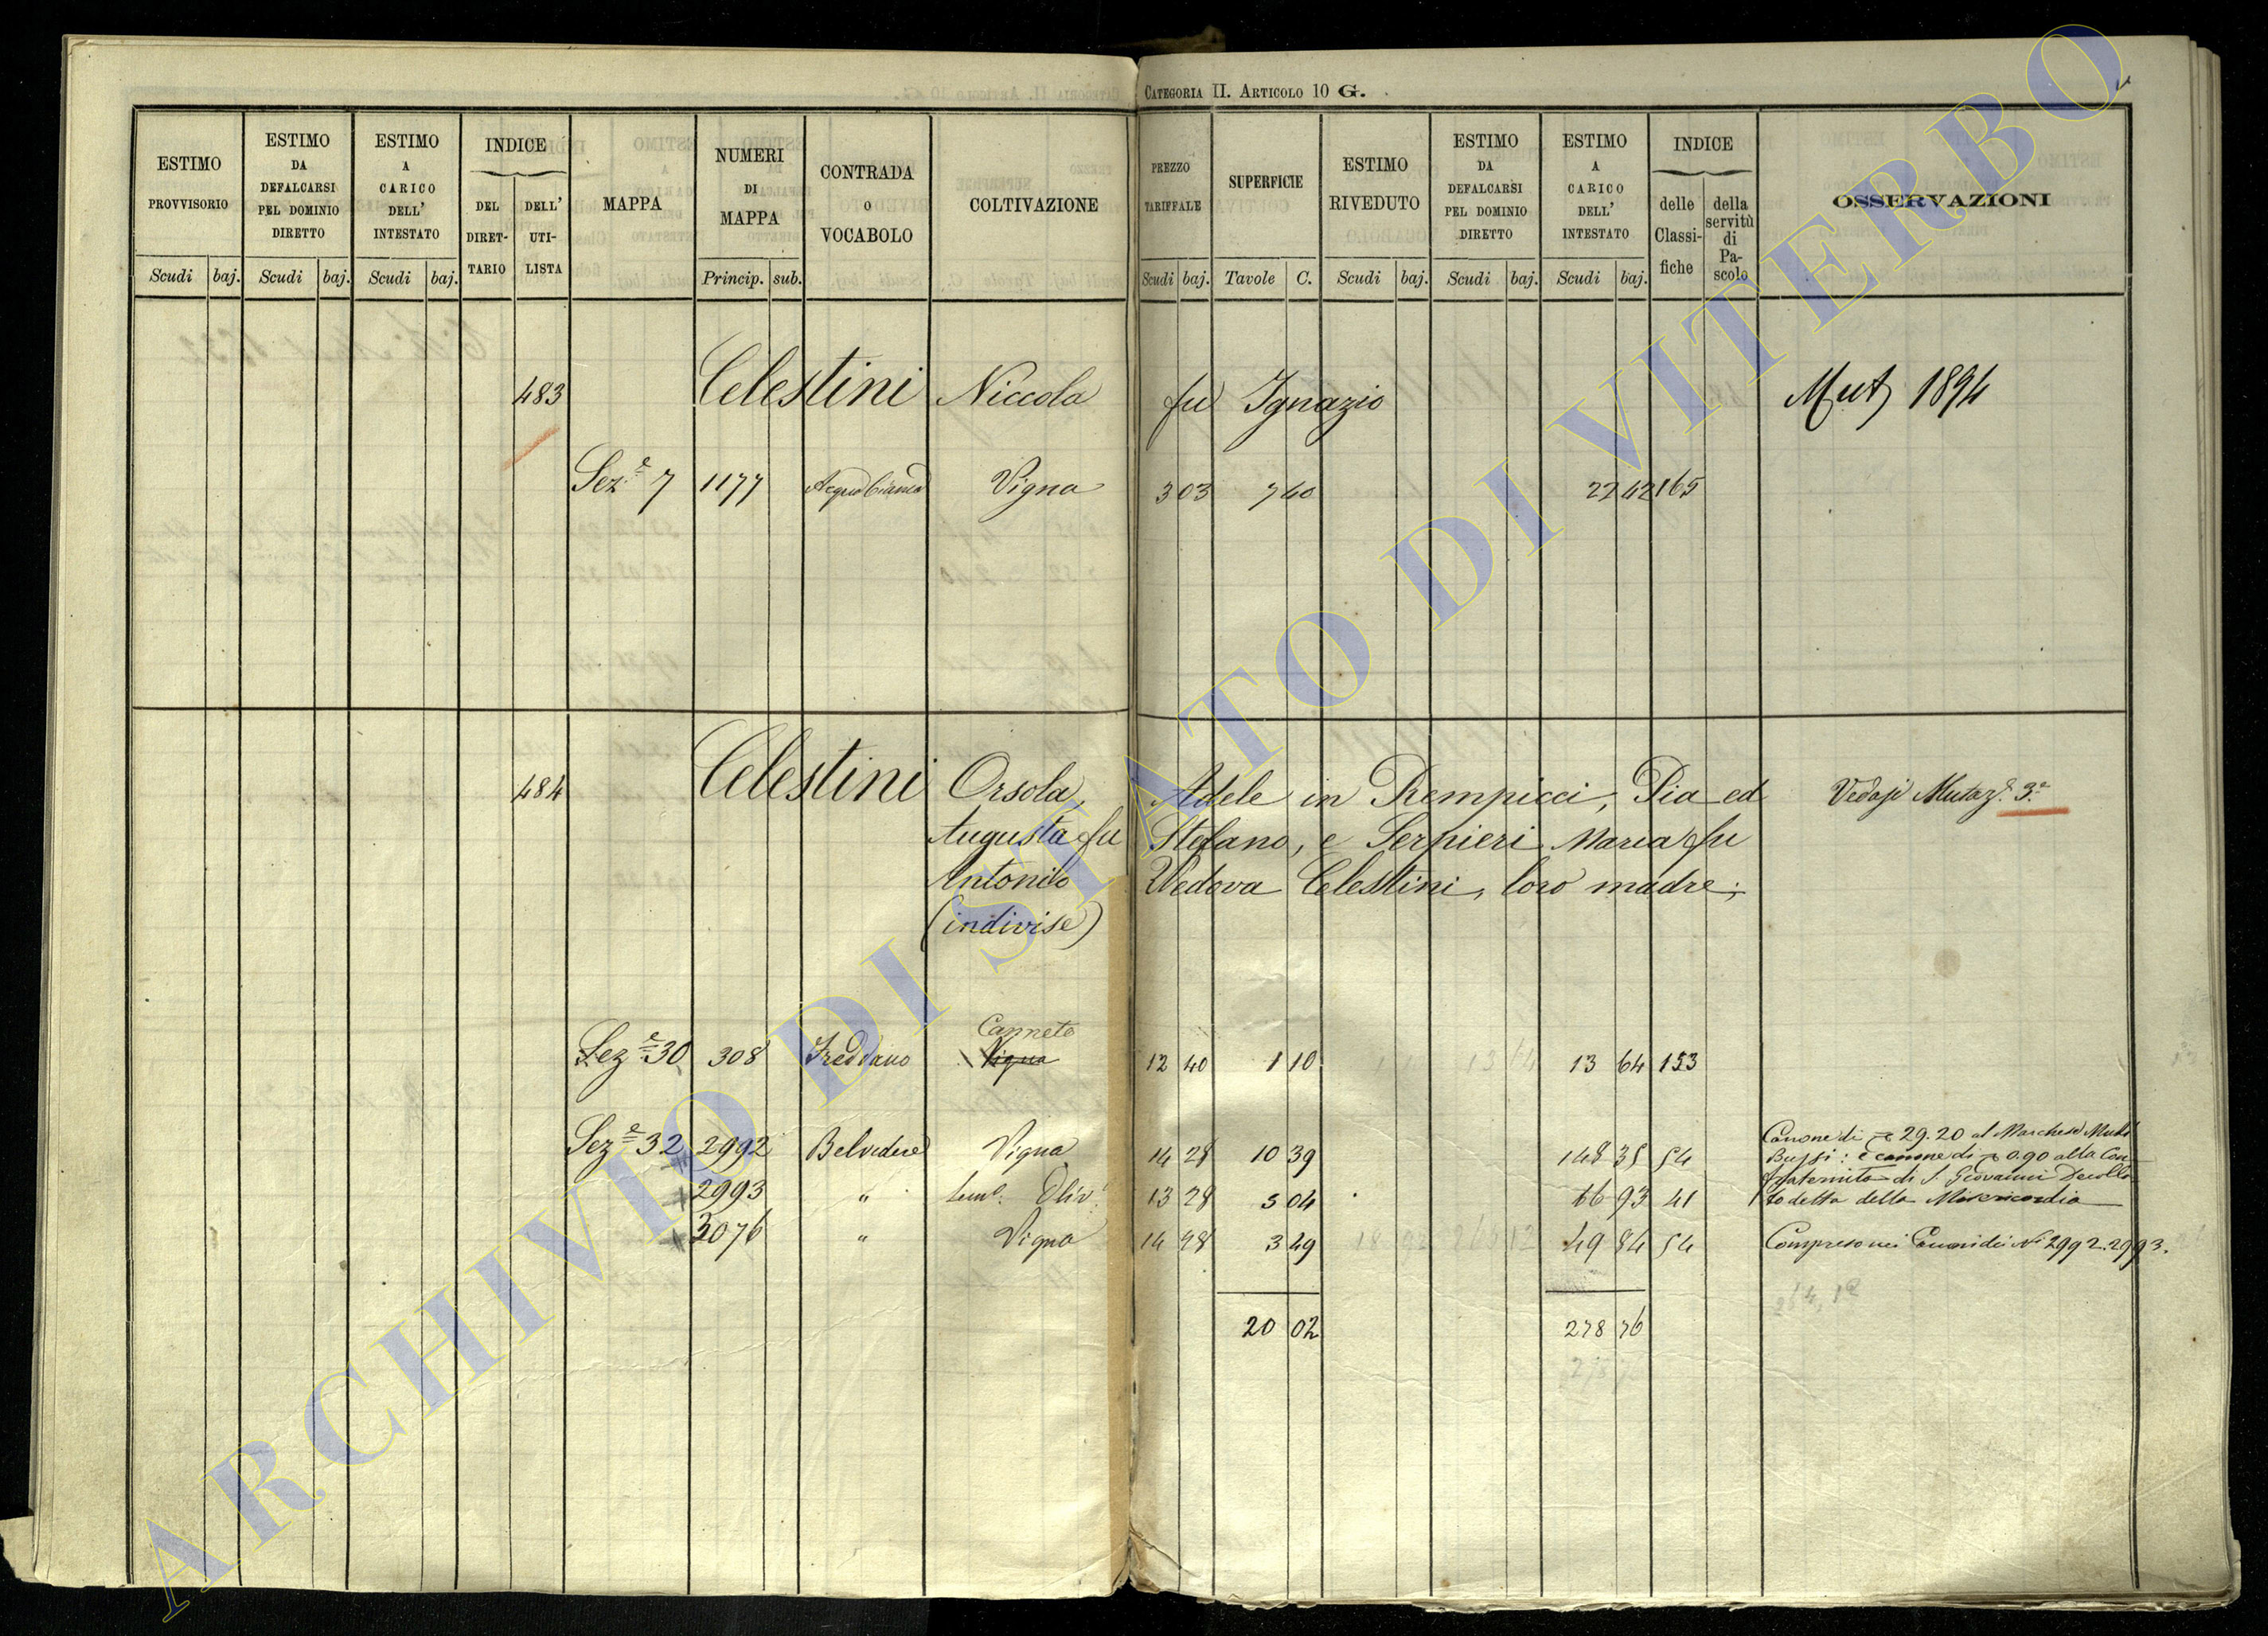 CATEGORIA II. ARTICOLO 10 G.
ESTIMO PROVVISORIO Scudi baj.
ESTIMO DA DEFALCARSI PEL DOMINIO DIRETTO Scudi baj.
ESTIMO A CARICO DELL' INTESTATO Scudi baj.
INDICE DEL DIRET-TARIO DELL' UTI-LISTA
MAPPA
NUMERI DI MAPPA Princip. sub.
CONTRADA O VOCABOLO
COLTIVAZIONE
PREZZO TARIFFALE Scudi baj.
SUPERFICIE Tavole C.
ESTIMO RIVEDUTO Scudi baj.
ESTIMO DA DEFALCARSI PEL DOMINIO DIRETTO Scudi baj.
ESTIMO A CARICO DELL' INTESTATO Scudi baj.
INDICE delle Classi-fiche della servitù di Pa-scolo
OSSERVAZIONI
483 Celestini Niccola fu Ignazio Mut 1894
Sez.e 7 1177 Acqua bianca Vigna 3 03 7 40 22 42 165
484 Celestini Orsola, Adele in Prempicci, Pia ed Vedasi Mutaz.e 3.a
Augusta fu Stefano, e Serpieri Maria fu
Antonio Vedova Celestini, loro madre;
(indivise)
Canneto
Sez.e 30 308 Freddano Vigna 12 40 1 10 13 64 153
Sez.e 32 2992 Belvedere Vigna 14 28 10 39 148 35 54
2993 " Sem.o Oliv.o 13 28 5 04 66 93 41
3076 " Vigna 14 28 3 49 49 84 54
Canone di 29.20 al Marchese
Bussi: e canone di 0.90 alla Con-
fraternita di S. Giovanni Decolla
to detta della Misericordia
Compreso nei Canoni dei Ni 2992.2993.
20 02 278 76
ARCHIVIO DI STATO DI VITERBO